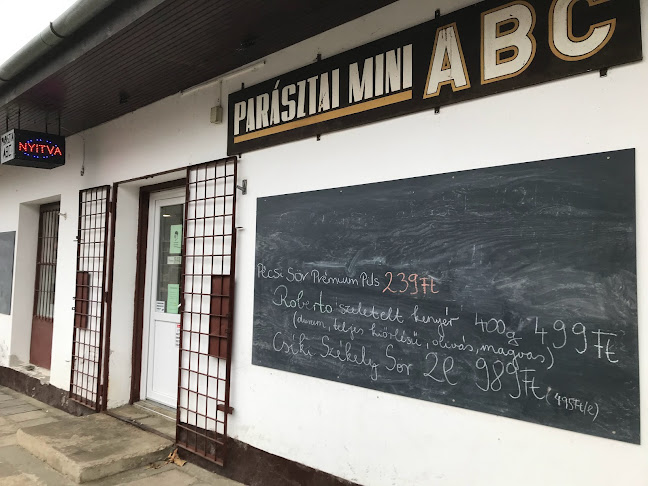 PARÁSZTAI MINI ABC
NYITVA
Pécsi Sör Prémium Pils 239Ft
Roberto szeletelt kenyér 400g 499Ft
(durum, teljes kiőrlésű, olivás, magvas)
Csíki Székely Sör 2l 989Ft (495Ft/l)